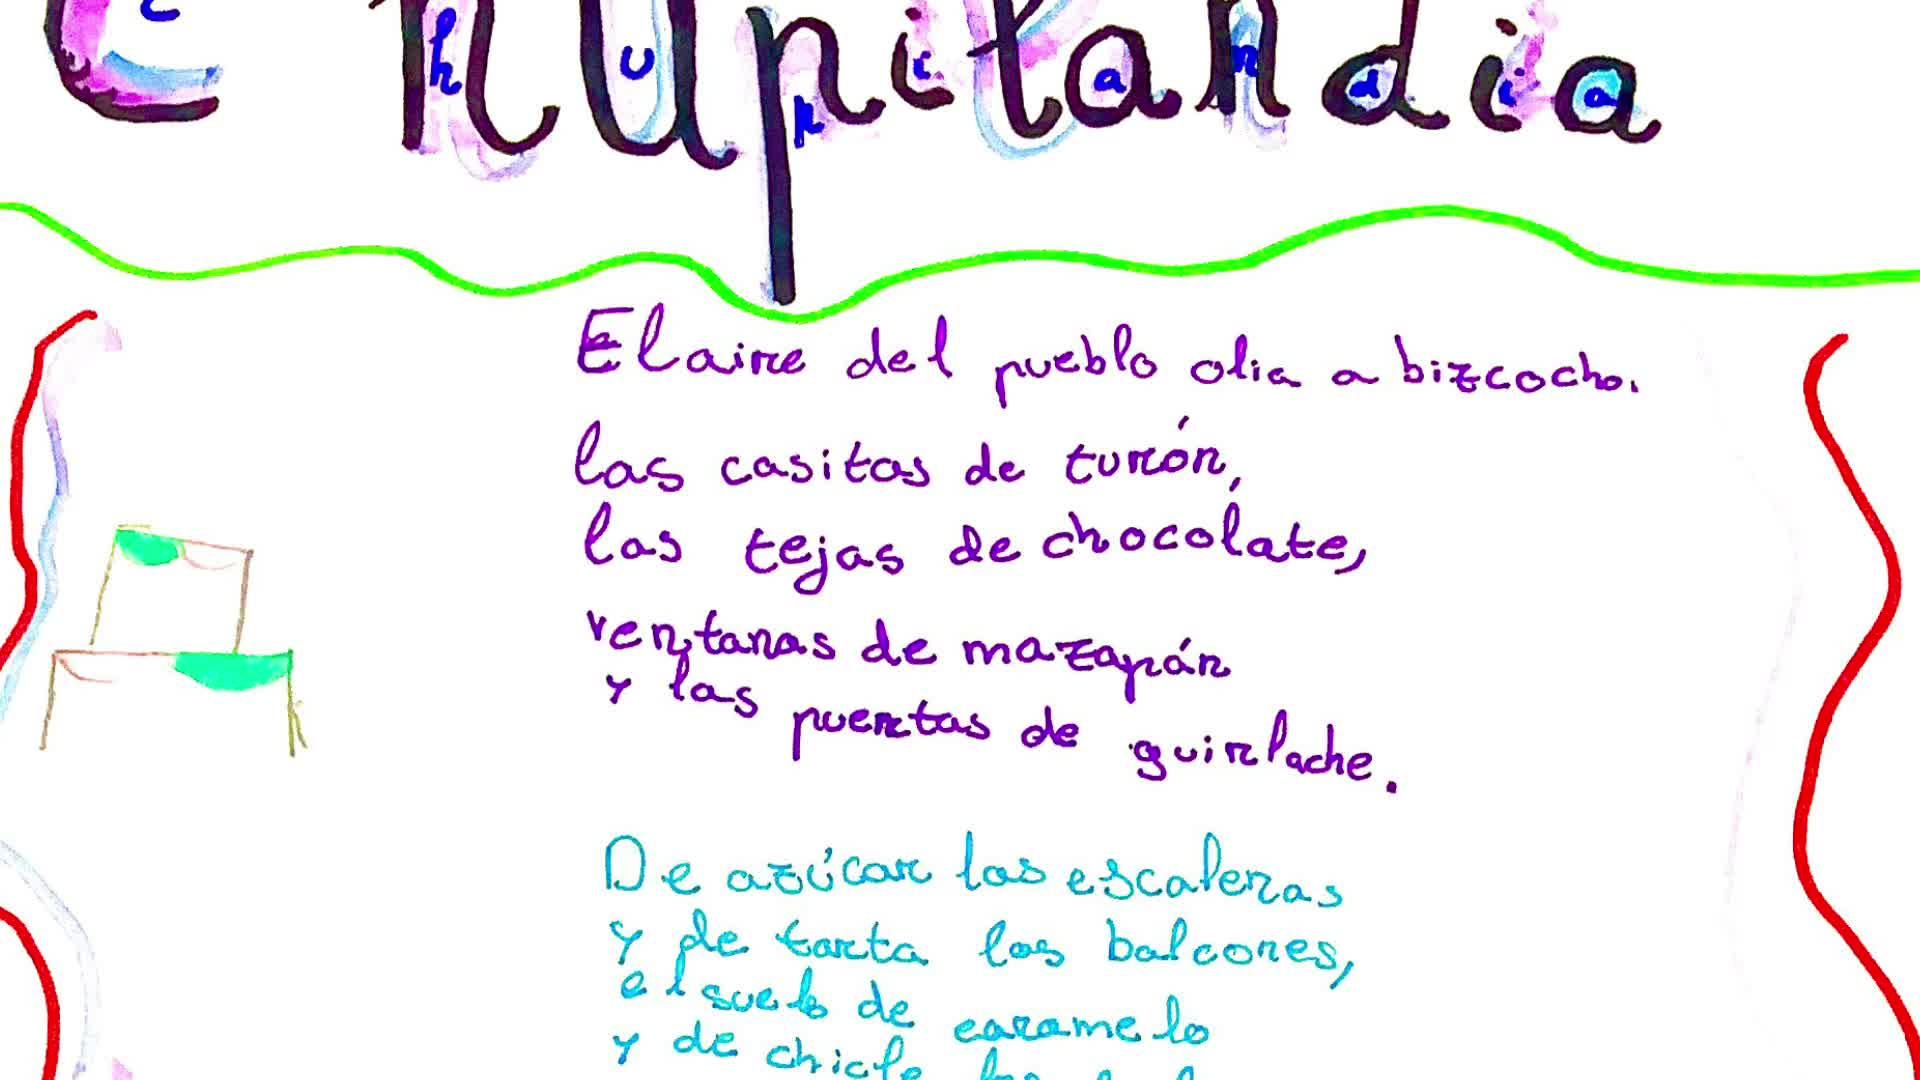 Chupilandia
El aire del pueblo olia a bizcocho.
las casitas de turrón,
las tejas de chocolate,
ventanas de mazapán
y las puertas de guirlache.
De azúcar las escaleras
y de tarta los balcones,
el suelo de caramelo
y de chicle